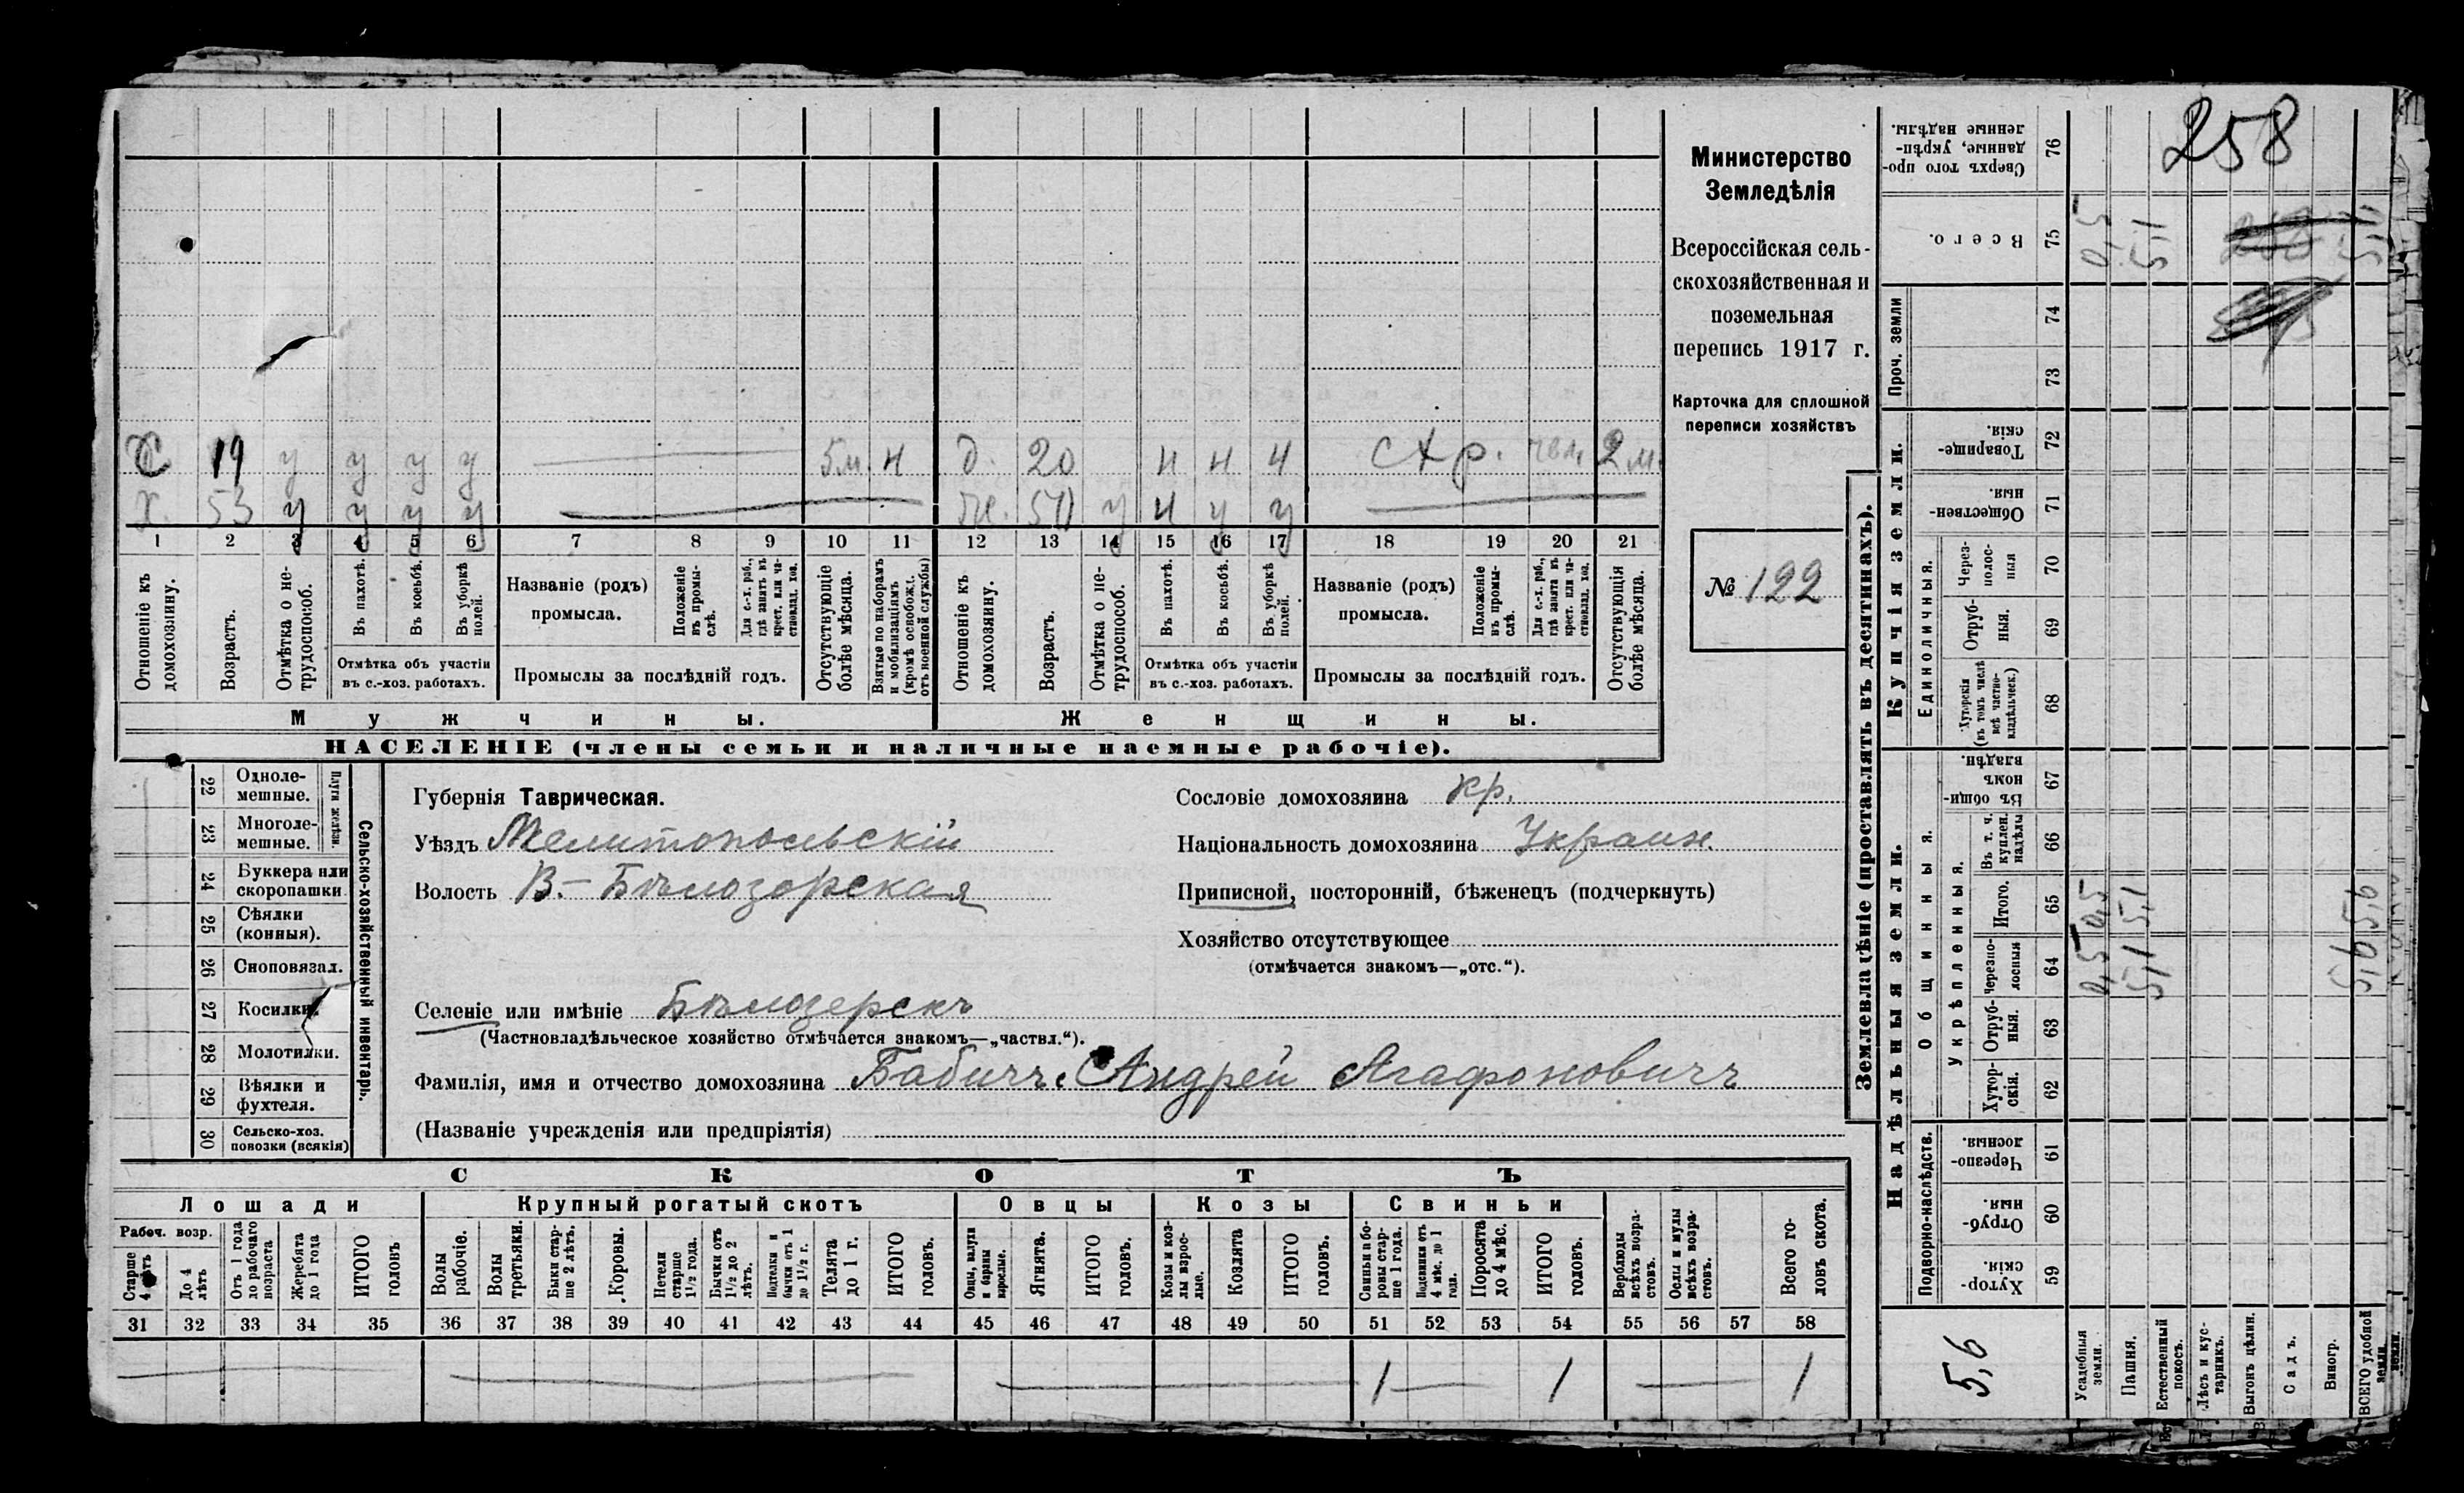 Министерство
Земледѣлія
Всероссійская сель-
скохозяйственная и
поземельная
перепись 1917 г.
Карточка для сплошной
переписи хозяйствъ
№ 122
258
С 19 у у у у 5 м. н д. 20 н н н 2 м.
Х. 53 у у у у ж. у н у у
1 2 3 4 5 6 7 8 9 10 11 12 13 14 15 16 17 18 19 20 21
Отношеніе къ домохозяину.
Возрастъ.
Отмѣтка о не-трудоспособ.
Въ пахотѣ.
Въ косьбѣ.
Въ уборкѣ полей.
Отмѣтка объ участіи
въ с.-хоз. работахъ.
Названіе (родъ)
промысла.
Положеніе въ промы-слѣ.
Для с.-х. раб., гдѣ занятъ въ крест. или ча-стновлад. хоз.
Промыслы за послѣдній годъ.
Отсутствующіе болѣе мѣсяца.
Взятые по наборамъ и мобилизаціямъ (кромѣ освобожд. отъ военной службы)
Отношеніе къ домохозяину.
Возрастъ.
Отмѣтка о не-трудоспособ.
Въ пахотѣ.
Въ косьбѣ.
Въ уборкѣ полей.
Отмѣтка объ участіи
въ с.-хоз. работахъ.
Названіе (родъ)
промысла.
Положеніе въ промы-слѣ.
Для с.-х. раб., гдѣ занятъ въ крест. или ча-стновлад. хоз.
Промыслы за послѣдній годъ.
Отсутствующія болѣе мѣсяца.
Мужчины.
Женщины.
НАСЕЛЕНІЕ (члены семьи и наличные наемные рабочіе).
Сельско-хозяйственный инвентарь.
Плуги желѣзн.
22 Одноле-мешные.
23 Многоле-мешные.
24 Буккера или скоропашки.
25 Сѣялки (конныя).
26 Сноповязал.
27 Косилки.
28 Молотилки.
29 Вѣялки и фухтеля.
30 Сельско-хоз. повозки (всякія)
Губернія Таврическая.
Уѣздъ Мелитопольскій
Волость В.-Бѣлозерская
Сословіе домохозяина кр.
Національность домохозяина Украин.
Приписной, посторонній, бѣженецъ (подчеркнуть)
Хозяйство отсутствующее
(отмѣчается знакомъ—„отс.“).
Селеніе или имѣніе Бѣлозерскъ
(Частновладѣльческое хозяйство отмѣчается знакомъ—„частвл.“).
Фамилія, имя и отчество домохозяина Бабичъ Андрей Агафоновичъ
(Названіе учрежденія или предпріятія)
СКОТЪ
Лошади
Крупный рогатый скотъ
Овцы
Козы
Свиньи
Рабоч. возр.
Старше 4 лѣтъ
До 4 лѣтъ
Отъ 1 года до рабочаго возраста
Жеребята до 1 года
ИТОГО головъ
Волы рабочіе.
Волы третьяки.
Быки стар-ше 2 лѣтъ.
Коровы.
Нетели старше 1½ года.
Бычки отъ 1½ до 2 лѣтъ.
Подтелки и бычки отъ 1 до 1½ г.
Телята до 1 г.
ИТОГО головъ.
Овцы, валухи и бараны взрослые.
Ягнята.
ИТОГО головъ.
Козы и коз-лы взрос-лые.
Козлята
ИТОГО головъ.
Свиньи и бо-ровы стар-ше 1 года.
Подсвинки отъ 4 мѣс. до 1 года.
Поросята до 4 мѣс.
ИТОГО головъ.
Верблюды всѣхъ возра-стовъ.
Ослы и мулы всѣхъ возра-стовъ.
Всего го-ловъ скота.
31 32 33 34 35 36 37 38 39 40 41 42 43 44 45 46 47 48 49 50 51 52 53 54 55 56 57 58
1 1 1
Землевладѣніе (проставлять въ десятинахъ).
Купчія земли.
Надѣльныя земли.
Проч. земли
Единоличныя.
Общинныя.
Укрѣпленныя.
Подворно-наслѣдств.
76 Сверхъ того про-данные, укрѣп-ленные надѣлы.
75 Всего. 0,5 5,1
74
73
72 Товарище-скія.
71 Обществен-ныя.
70 Через-полос-ныя
69 Отруб-ныя.
68 Хуторскія (въ томъ числѣ всѣ частно-владѣльческ.)
67 Въ общи-номъ владѣн.
66 Въ т. ч. куплен. надѣлы
65 Итого. 0,5 5,1 5,6
64 Черезпо-лосныя 0,5 5,1 5,6
63 Отруб-ныя.
62 Хутор-скія.
61 Черезпо-лосныя.
60 Отруб-ныя.
59 Хутор-скія.
5,6
Усадебныя земли.
Пашня.
Естественный покосъ.
Лѣсъ и кус-тарникъ.
Выгонъ цѣлин.
Садъ.
Виногр.
ВСЕГО удобной земли.